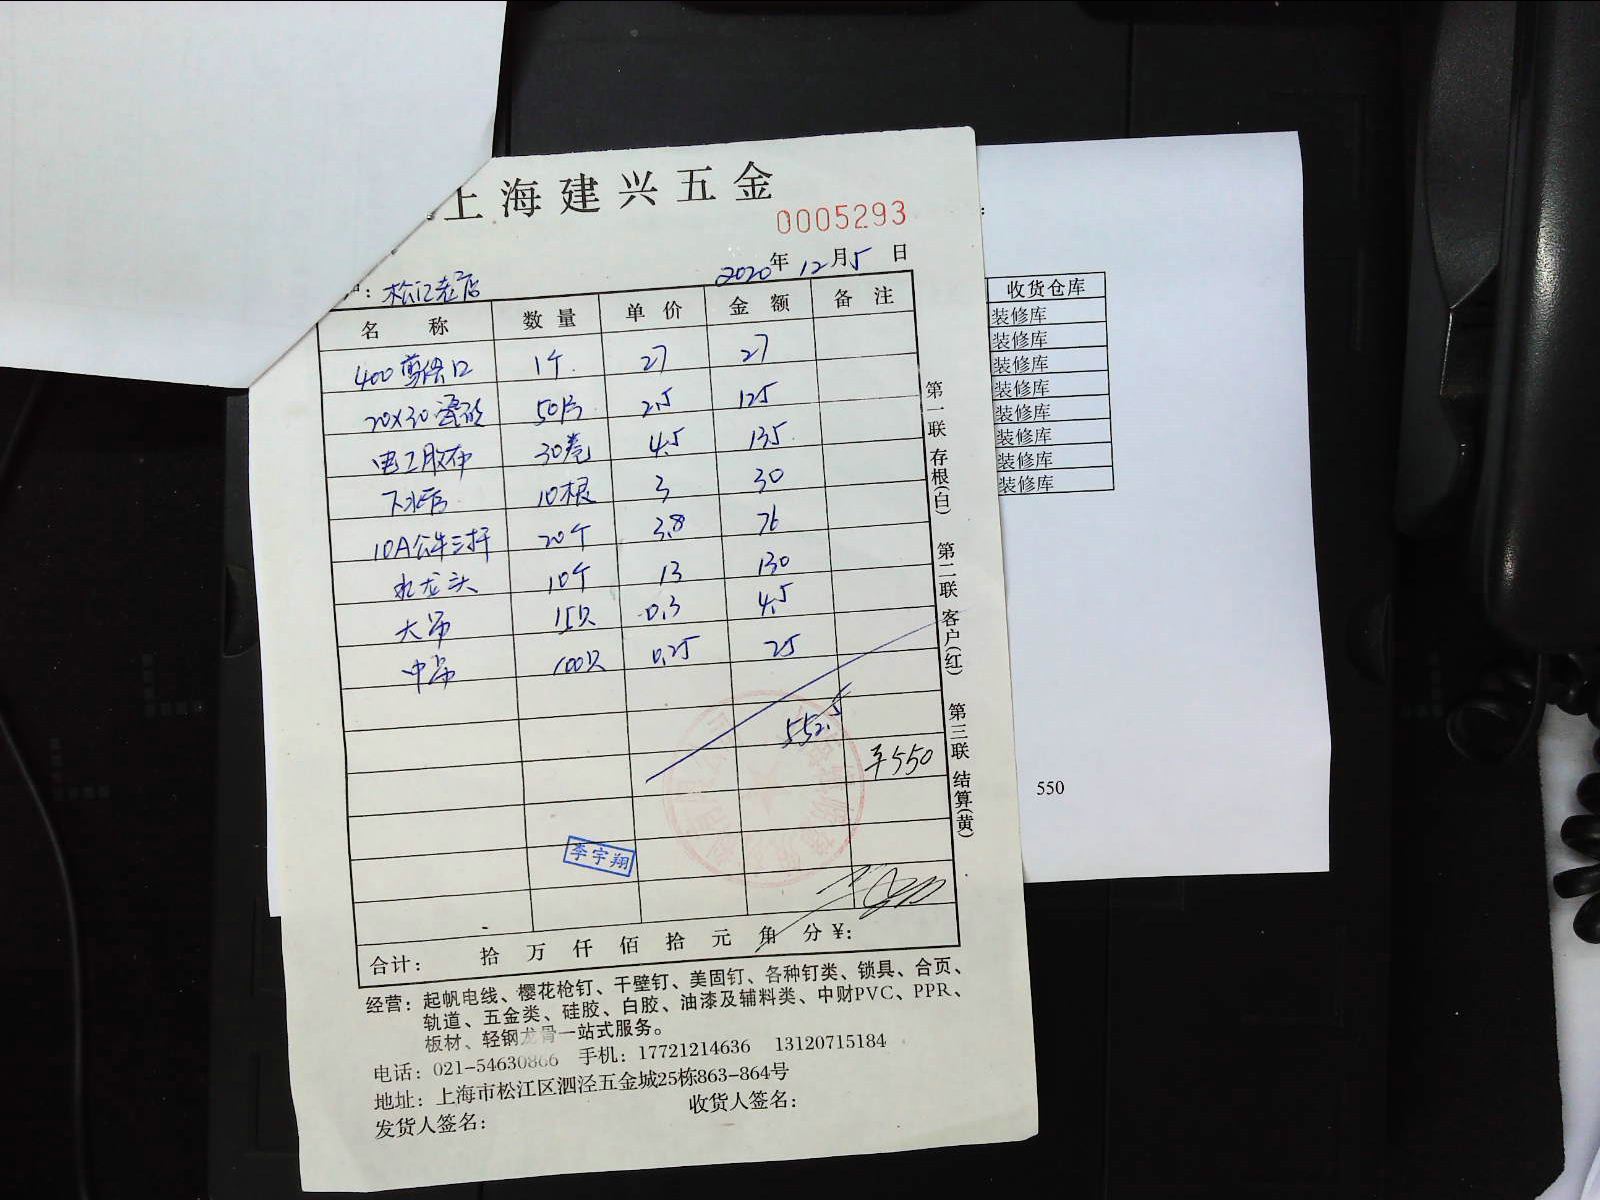 上海建兴五金
0005293
2020年12月5日
户：松江老店
名称 数量 单价 金额 备注
400剪线口 1个 27 27
20X30瓷砖 50片 2.5 125
电工胶布 30卷 4.5 135
下水管 10根 3 30
10A公牛三扦 20个 3.8 76
水龙头 10个 13 130
大吊 15只 0.3 4.5
中吊 100只 0.25 25
552.5
平550
李宇翔
合计： 拾 万 仟 佰 拾 元 角 分¥:
第一联 存根(白) 第二联 客户(红) 第三联 结算(黄)
经营：起帆电线、樱花枪钉、干壁钉、美固钉、各种钉类、锁具、合页、
轨道、五金类、硅胶、白胶、油漆及辅料类、中财PVC、PPR、
板材、轻钢龙骨一站式服务。
电话：021-54630866 手机：17721214636 13120715184
地址：上海市松江区泗泾五金城25栋863-864号
发货人签名: 收货人签名:
收货仓库
装修库
装修库
装修库
装修库
装修库
装修库
装修库
装修库
550